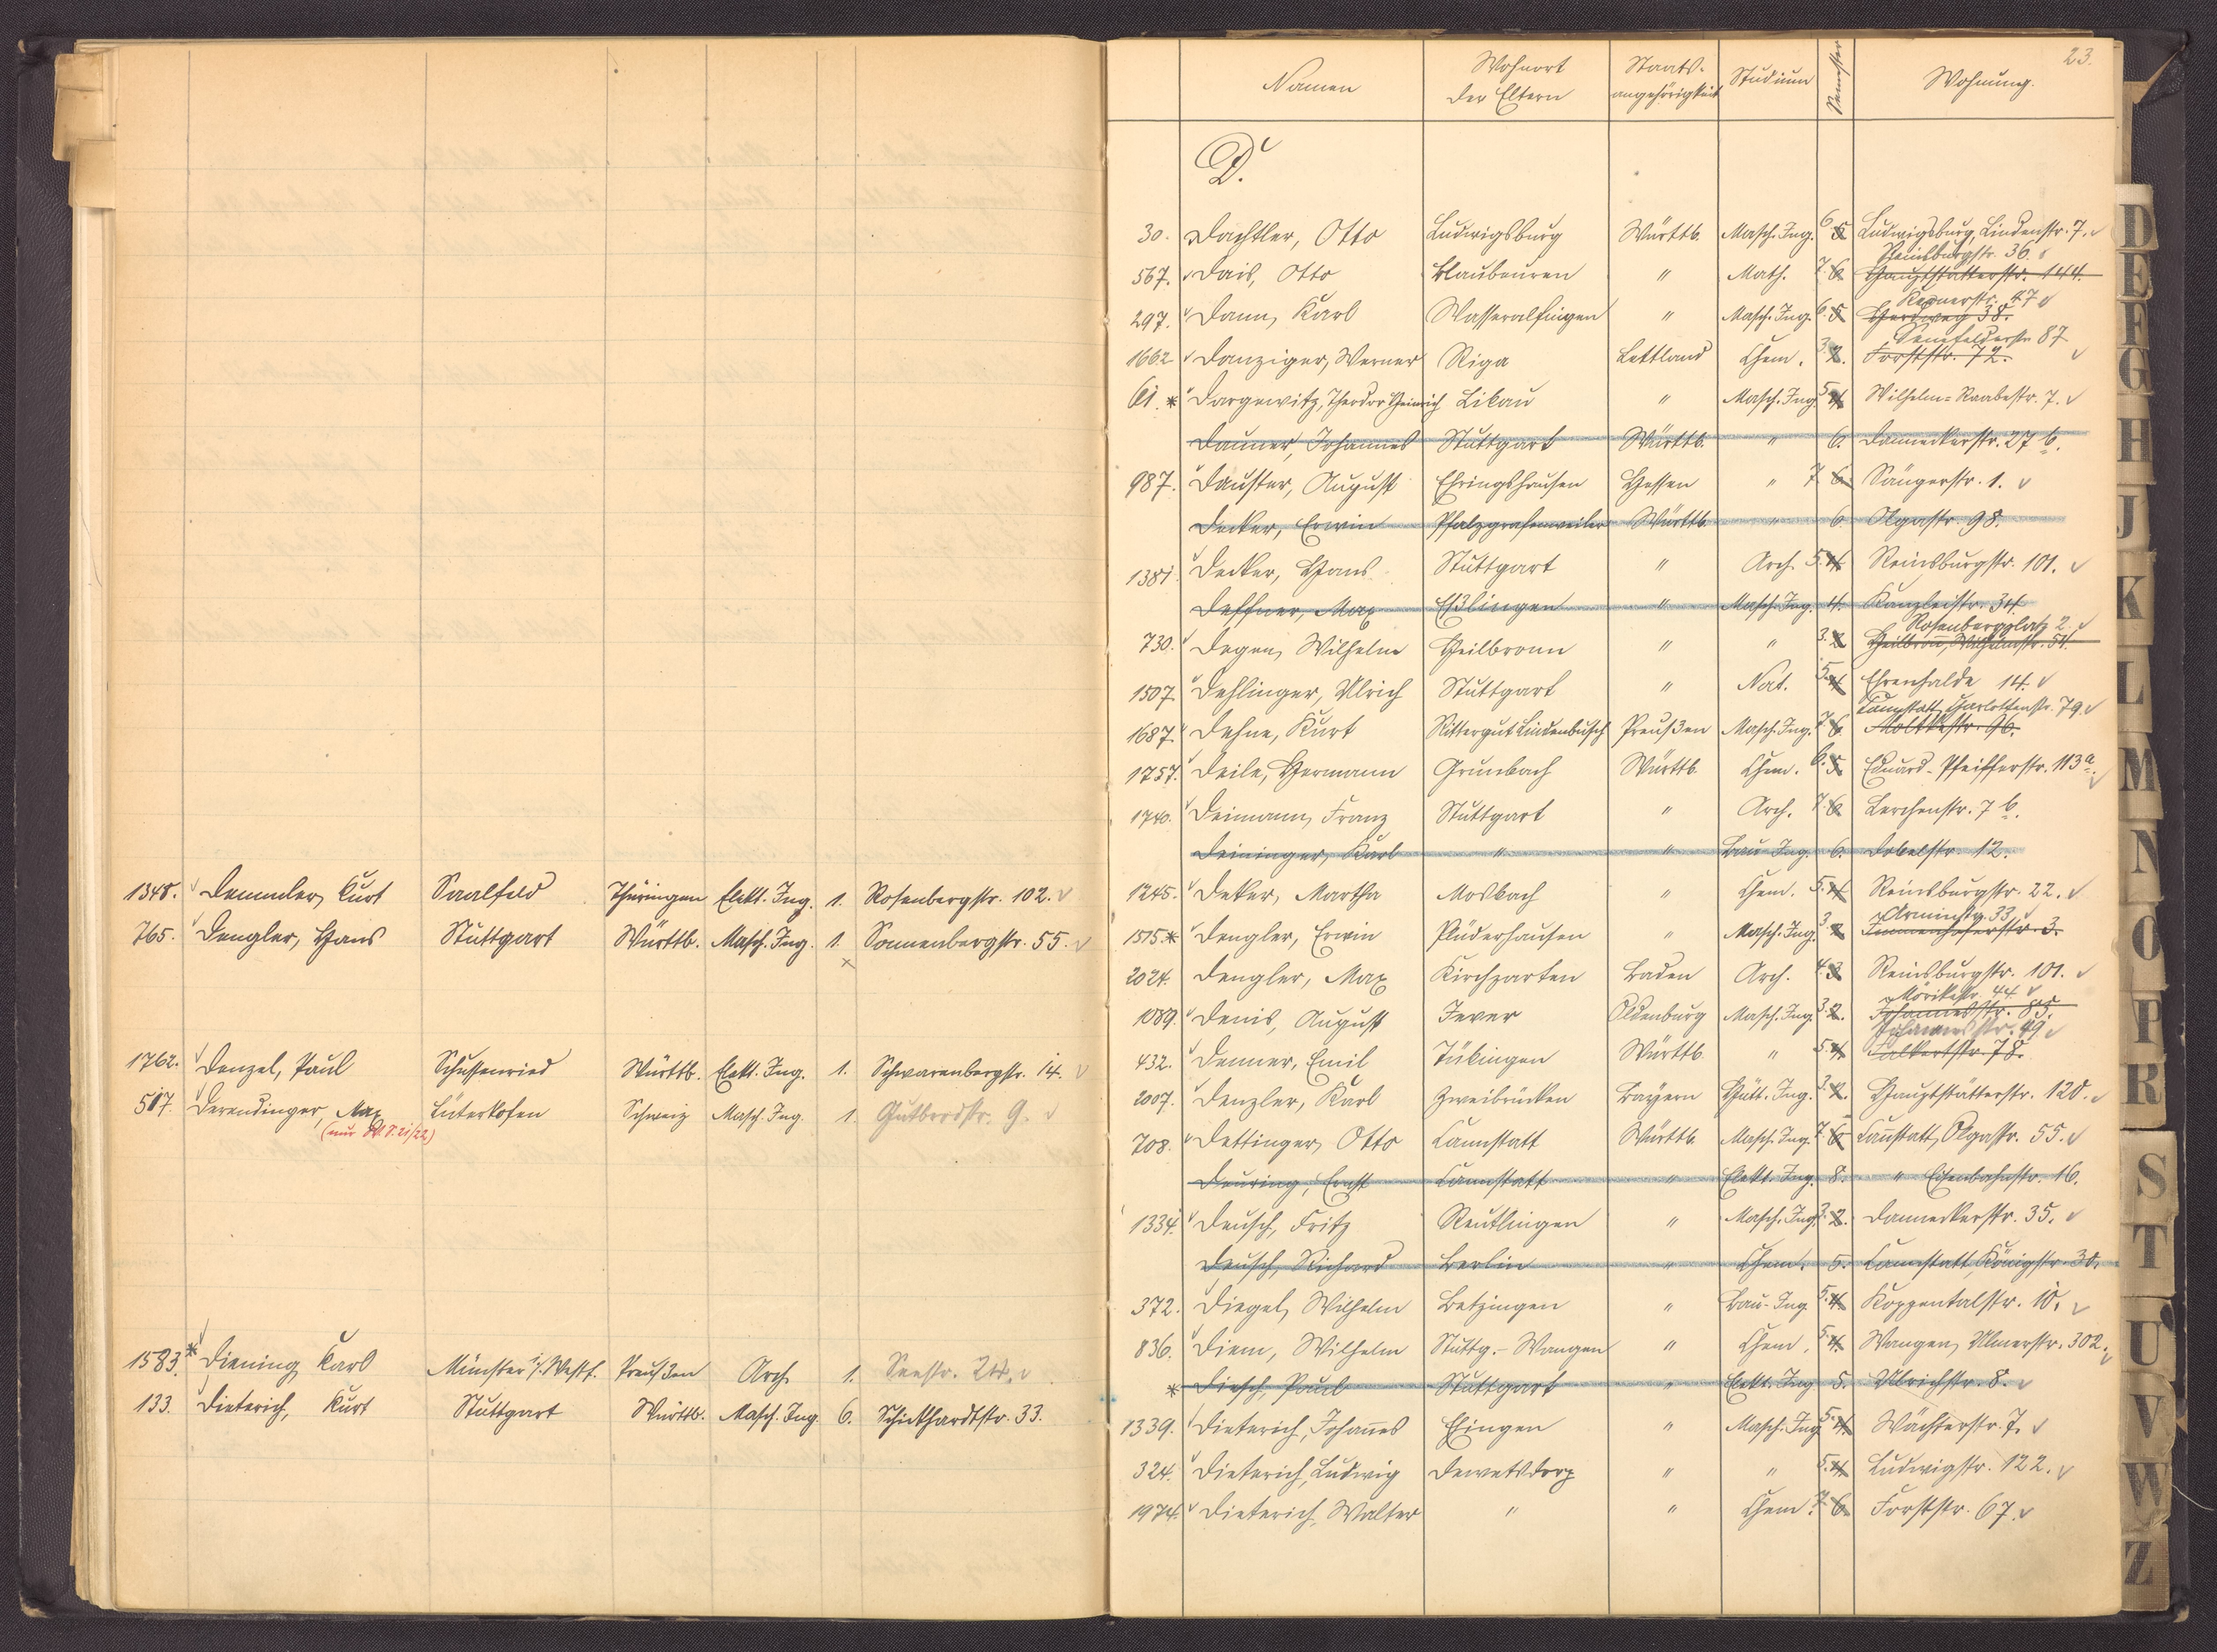 1348. Demmler, Kurt Saalfeld Thüringen Elekt. Ing. 1. Rosenbergstr. 102.
765. Dengler, Hans Stuttgart Württb. Masch. Ing. 1. Sonnenbergstr. 55.
1762. Denzel, Paul Schussenried Württb. Elekt. Ing. 1. Schwarenbergstr. 14.
517. Derendinger, Max Lüterkofen Schweiz Masch. Ing. 1. Gutbrodstr. 9.
(nur W.S. 21/22)
1583. * Diening, Karl Münster i/Westf. Preußen Arch. 1. Seestr.
133. Dieterich, Kurt Stuttgart Württb. Masch. Ing. 6. Schickhardtstr. 33.
23.
Namen Wohnort der Eltern Staats-angehörigkeit Studium Semester Wohnung.
D.
30. Dachtler, Otto Ludwigsburg Württb. Masch. Ing. 6. 5. Ludwigsburg, Lindenstr. 7.
Reinsburgstr. 36.
567. Dais, Otto Blaubeuren " Math. 7. 6. Hauptstätterstr. 144.
Kernerstr. 47
297. Dann, Karl Wasseralfingen " Masch. Ing. 6. 5. Herdweg 38.
Senefelderstr. 87
1662 Danziger, Werner Riga Lettland Chem. 3. 2. Forststr. 72.
61. * Dargewitz, Theodor Heinrich Libau " Masch. Ing. 5. 4. Wilhelm-Raabestr. 7.
Dauner, Johannes Stuttgart Württb. " 6. Danneckerstr. 27 b.
987. Däuster, August Ehringshausen Hessen " 7. 6. Sängerstr. 1.
Decker, Erwin Pfalzgrafenweiler Württb. " 6. Olgastr. 98.
1381. Decker, Hans Stuttgart " Arch. 5. 4. Reinsburgstr. 101.
Deffner, Max Eßlingen " Masch. Ing. 4. Kanzleistr. 34.
Rosenbergplatz 2.
730. Degen, Wilhelm Heilbronn " " 3. 2. Heilbronn, Wilhelmstr. 54.
1507. Dehlinger, Ulrich Stuttgart " Nat. 5. 4. Ehrenhalde 14.
Cannstatt, Charlottenstr. 79.
1687. Dehne, Kurt Rittergut Lindenbusch Preußen Masch. Ing. 7. 6. Moltkestr. 96.
1757. Deile, Hermann Grunbach Württb. Chem. 6. 5. Eduard-Pfeifferstr. 113a.
1740. Deimann, Franz Stuttgart " Arch. 7. 6. Lerchenstr. 7 b.
Deininger, Karl " " Bau-Ing. 6. Dobelstr. 12.
1245. Deker, Martha Mosbach " Chem. 5. 4. Reinsburgstr. 22.
Arminstr. 33
1515. * Dengler, Erwin Plüderhausen " Masch. Ing. 3. 2. Immenhoferstr. 3.
2024. Dengler, Max Kirchzarten Baden Arch. 4. 3. Reinsburgstr. 101.
Mörikestr. 44.
1089. Denis, August Jever Oldenburg Masch. Ing. 3. 2. Johannesstr. 85.
Johannesstr. 49
432. Denner, Emil Tübingen Württb. " 5. 4. Falkertstr. 78.
2007. Denzler, Karl Zweibrücken Bayern Hütt. Ing. 3. 2. Hauptstätterstr. 120.
708. Dettinger, Otto Cannstatt Württb. Masch. Ing. 7. 6. Cannstatt, Olgastr. 55.
Deuring, Ernst Cannstatt " Elekt. Ing. 8. " Eisenbahnstr. 16.
1334. Deusch, Fritz Reutlingen " Masch. Ing. 3. 2. Danneckerstr. 35.
Deusch, Richard Berlin " Chem. 5. Cannstatt, Königstr. 30.
372. Diegel, Wilhelm Betzingen " Bau-Ing. 5. 4. Koppentalstr. 10.
836. Diem, Wilhelm Stuttg.-Wangen " Chem. 5. 4. Wangen, Ulmerstr. 302.
* Diesch, Paul Stuttgart " Elekt. Ing. 5. Ulrichstr. 8.
1339. Dieterich, Johannes Ehingen " Masch. Ing. 5. 4. Wächterstr. 7.
324. Dieterich, Ludwig Dewetsdorp " " 5. 4. Ludwigstr. 122.
1974. Dieterich, Walter " " Chem. 7. 6. Forststr. 67.
D
E
F
G
H
J
K
L
M
N
O
P
R
S
T
U
V
W
Z